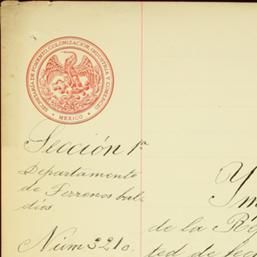 SECRETARIA DE FOMENTO, COLONIZACION, INDUSTRIA Y COMERCIO
MEXICO
Sección 1ª
Departamento
de Terrenos bal-
dios
Núm 3210.
de la
ted de